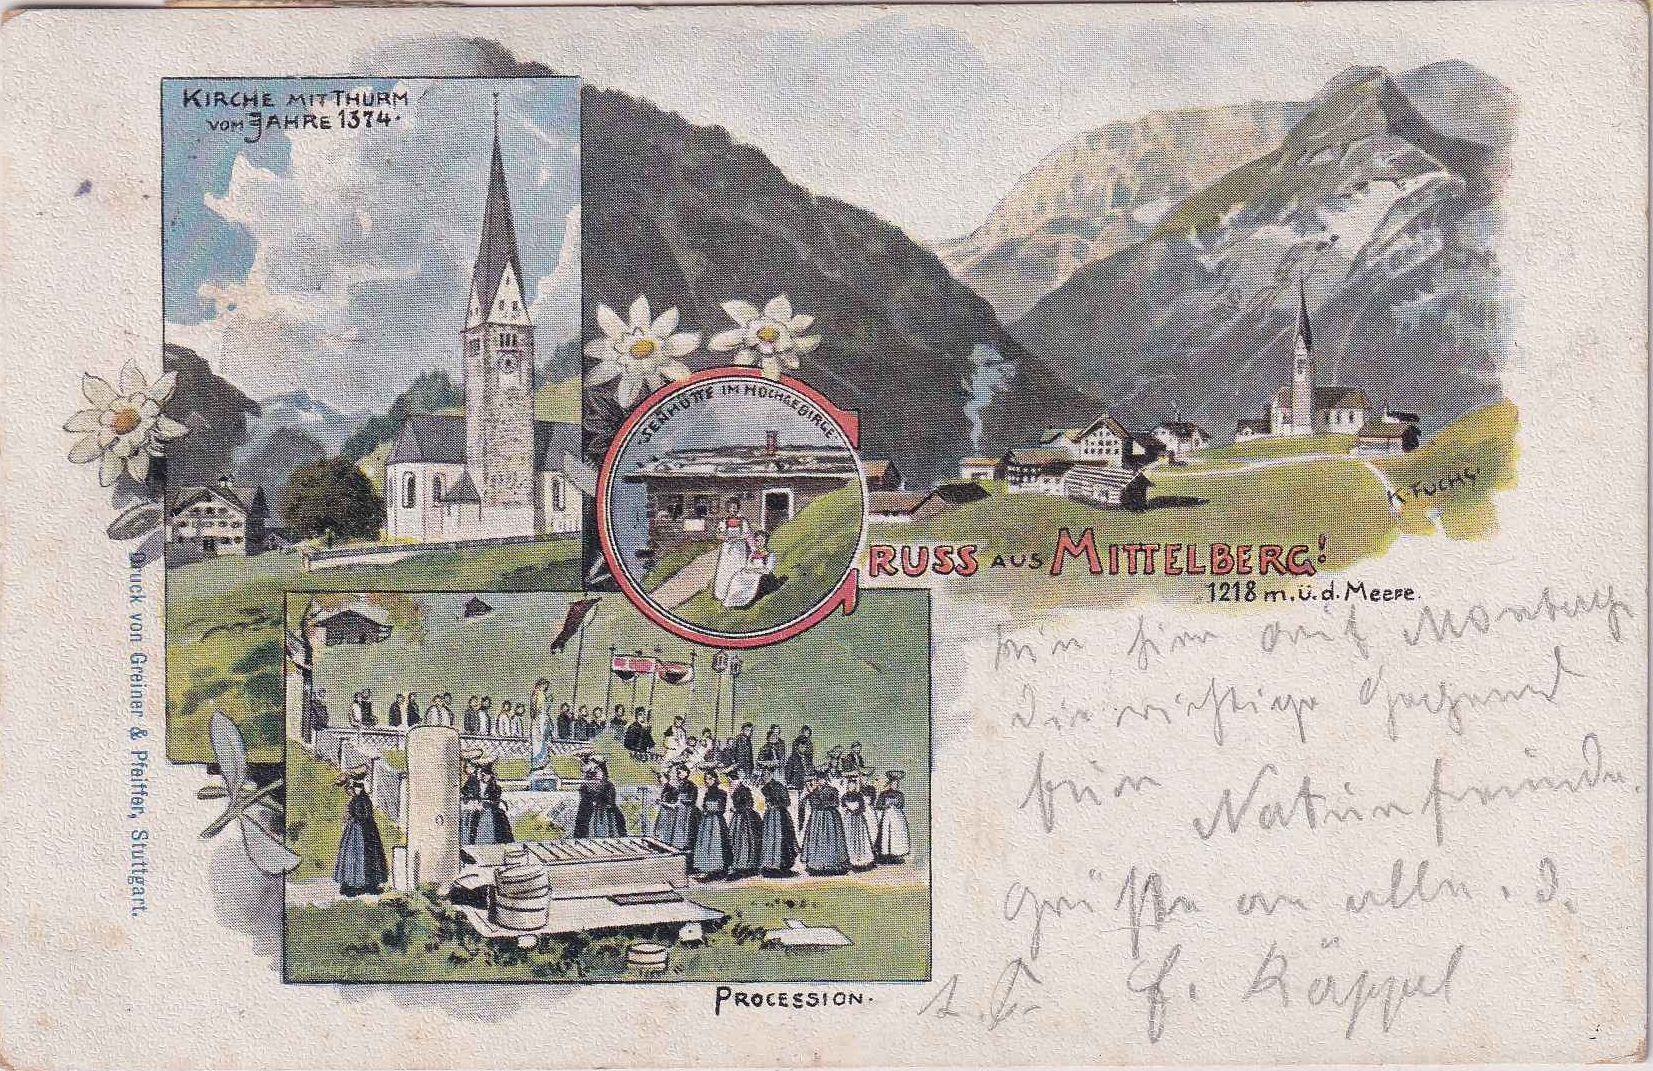 KIRCHE MIT THURM
VOM JAHRE 1374.
SENHÜTTE IM HOCHGEBIRGE
GRUSS AUS MITTELBERG!
1218 m. ü. d. Meere.
K. FUCHS.
Druck von Greiner & Pfeiffer, Stuttgart.
PROCESSION.
bin hier auf
die richtige Gegend
Naturfreunde.
Grüße an alle.
Käppel